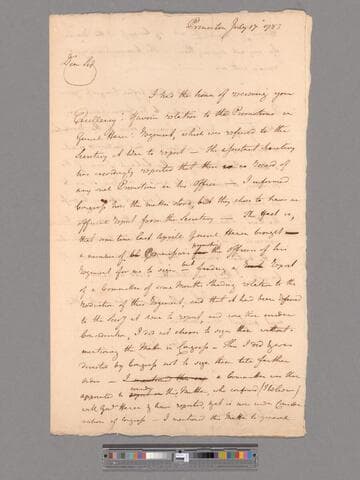 Princeton July 17th 1783
Dear Sir
I had the honor of receiving your
Excellency's favour relation to the Promotions in
General Hazen's Regiment, which was referred to the
Secretary at War to report — The assistant Secretary
has accordingly reported that there is no Record of
any such Promotions in his Office — I informed
Congress how the matter stood, but they chose to have an
Official Report from the Secretary — The fact is,
that some time last April General Hazen brought
a number of Commissions for the officers of his
Regiment for me to sign but finding a Report
of a Committee of some Months standing relation to the
reduction of this Regiment, and that it had been referred
to the Secy at War to report, and was then under
Consideration, I did not choose to sign them without
mentioning the Matter in Congress — This I did & was
directed by Congress not to sign them till further
orders — a Committee was then
appointed to on this Matter, who conferred (I believe)
with Genl Hazen & have reported, yet is now under Conside-
ration of Congress — I mentioned the Matter to General